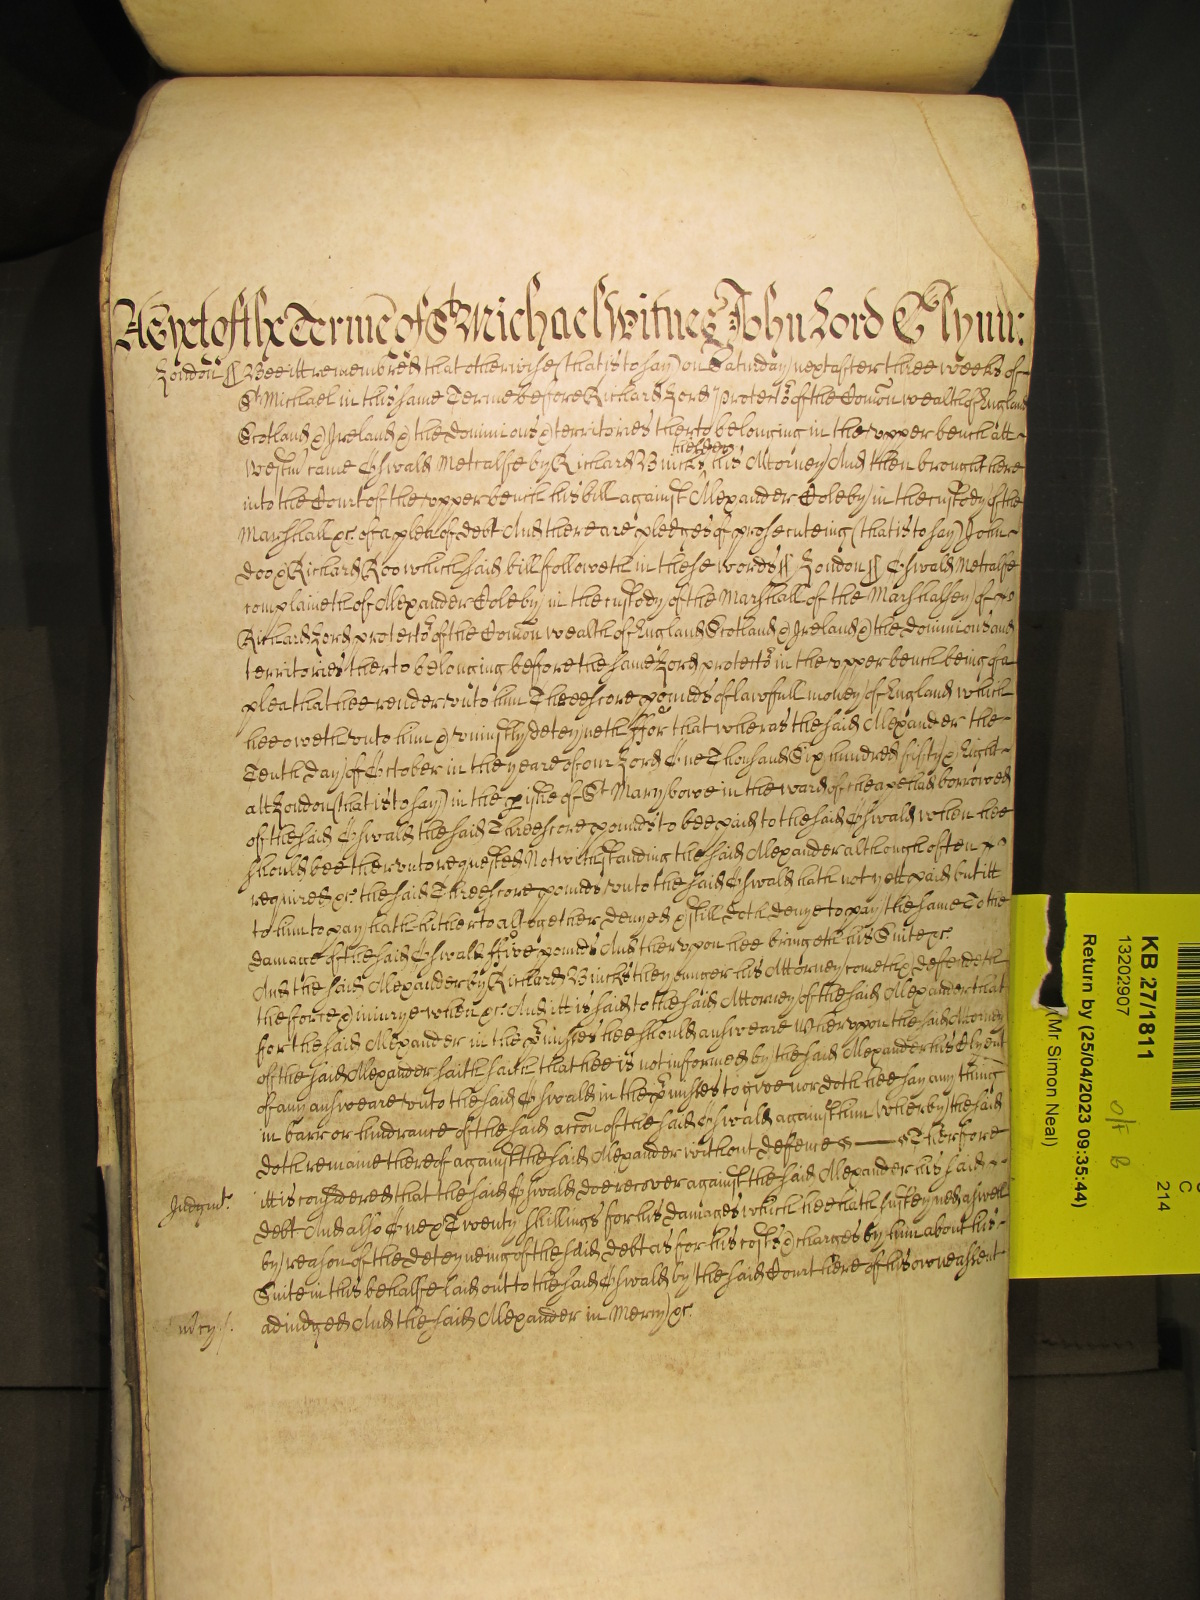 As yet of the Terme of St Michael Witnes John Lord Glynn:
London ss Bee itt remembred that otherwise (that is to say) on Saturday next after three weeks of
St Michaell in this same Terme before Richard Lord protector of the Comon wealth of England
Scotland & Ireland & the dominions & territories therto belonging in the upper bench att
Westm came Oswald Metcalfe by Richard Bincks his Attorney And then brought here
into the Court of the upper bench his bill against Alexander Coleby in the custody of the
Marshall &c. of a plea of debt And there are pledges of prosecuteing (that is to say) John
Doo & Richard Roo which said bill followeth in these words ss London ss Oswald Metcalfe
complaineth of Alexander Coleby in the custody of the Marshall of the Marshallsey of
Richard Lord protector of the Comon wealth of England Scotland & Ireland & the dominions and
territories therto belonging beffore the same Lord protector in the upper bench being of a
plea that hee render unto him Threescore pounds of lawfull money of England which
hee oweth unto him & uniustly deteyneth ffor that wheras the said Alexander the
Tenth day of October in the yeare of our Lord One Thousand Six hundred fifty & Eight
att London (that is to say) in the pishe of St Mary bowe in the ward of cheape had borrowed
of the said Oswald the said Threescore pounds to bee paid to the said Oswald when hee
should bee therunto requested Notwithstanding the said Alexander although often
required &c. the said Threescore pounds unto the said Oswald hath not yett paid but itt
to him to pay hath hitherto altogether denyed & still doth denye to pay the same To the
damage of the said Oswald ffive pounds And therupon hee bringeth his Suite &c
And the said Alexander by Richard Bincks the younger his Attorney cometh & defendeth
the force & iniurye when &c. And itt is said to the said Attorney of the said Alexander that
for the said Alexander in the pmisses hee should answeare Wherupon the said Attorney
of the said Alexander saith saith that hee is not informed by the said Alexander his Clyent
of any answeare unto the said Oswald in the pmisses to give nor doth hee say any thing
in barr or hindrance of the said accon of the said Oswald against him Wherby the said
doth remaine thereof against the said Alexander without defence Therfore
Judgmt. itt is considered that the said Oswald doe recover against the said Alexander his said
debt And also One & Twenty shillings for his damages which hee hath susteyned aswell
by reason of the deteyneing of the said debt as for his costs & charges by him about his
Suite in this behalfe laid out to the said Oswald by the said Court here of his owne assent
mcy adiudged And the said Alexander in Mercy &c.
KB 27/1811
13202907
Return by (25/04/2023 09:35:44)
(Mr Simon Neal)
C
214